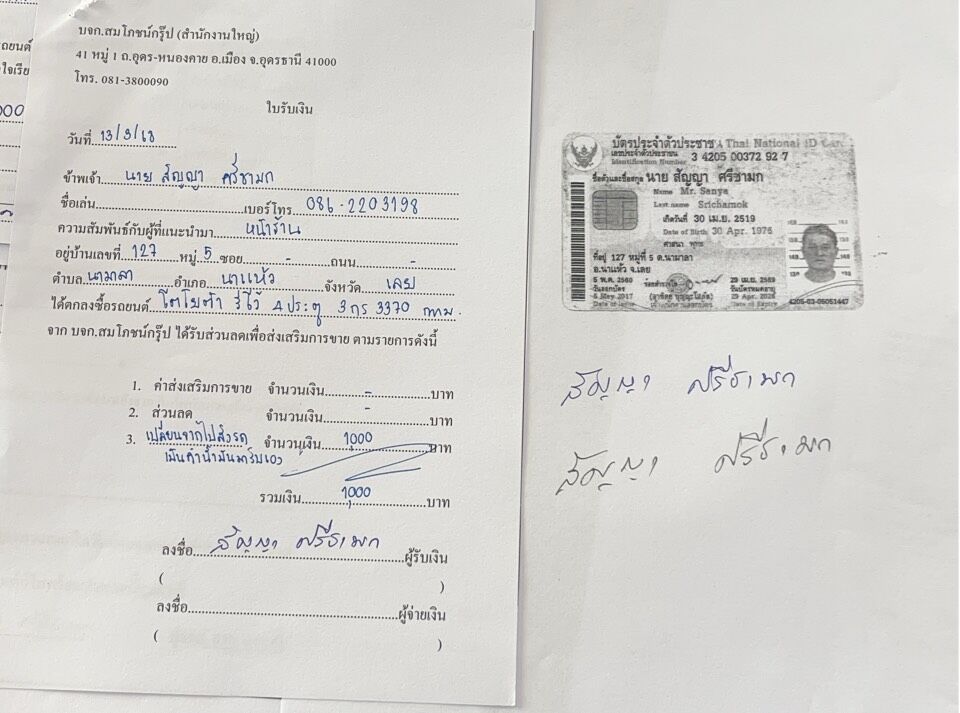 ถยนต์
ใจเรีย
000
บจก.สมโภชน์กรุ๊ป (สำนักงานใหญ่)
41 หมู่ 1 ถ.อุดร-หนองคาย อ.เมือง จ.อุดรธานี 41000
โทร. 081-3800090
ใบรับเงิน
วันที่ 13/3/68
ข้าพเจ้า นาย สัญญา ศรีชามก
ชื่อเล่น เบอร์โทร 086-2203198
ความสัมพันธ์กับผู้ที่แนะนำมา หน้าร้าน
อยู่บ้านเลขที่ 127 หมู่ 5 ซอย - ถนน -
ตำบล นามาลา อำเภอ นาแห้ว จังหวัด เลย
ได้ตกลงซื้อรถยนต์ โตโยต้า รีโว่ 4 ประตู 3 กร 3370 กทม.
จาก บจก.สมโภชน์กรุ๊ป ได้รับส่วนลดเพื่อส่งเสริมการขาย ตามรายการดังนี้
1. ค่าส่งเสริมการขาย จำนวนเงิน - บาท
2. ส่วนลด จำนวนเงิน - บาท
3. เปลี่ยนจากไปส่งรถ จำนวนเงิน 1000 บาท
เป็นค่าน้ำมันมารับเอง
รวมเงิน 1000 บาท
ลงชื่อ สัญญา ศรีชามก ผู้รับเงิน
( )
ลงชื่อ ผู้จ่ายเงิน
( )
บัตรประจำตัวประชาช Thai National ID Card
เลขประจำตัวประชาชน 3 4205 00372 92 7
Identification Number
ชื่อตัวและชื่อสกุล นาย สัญญา ศรีชามก
Name Mr. Sanya
Last name Srichamok
เกิดวันที่ 30 เม.ย. 2519
Date of Birth 30 Apr. 1976
ศาสนา พุทธ
ที่อยู่ 127 หมู่ที่ 5 ต.นามาลา
อ.นาแห้ว จ.เลย
5 พ.ค. 2560
วันออกบัตร
5 May 2017
Date of Issue
29 เม.ย. 2569
วันบัตรหมดอายุ
29 Apr. 2026
Date of Expiry
4205-03-05051447
สัญญา ศรีชามก
สัญญา ศรีชามก